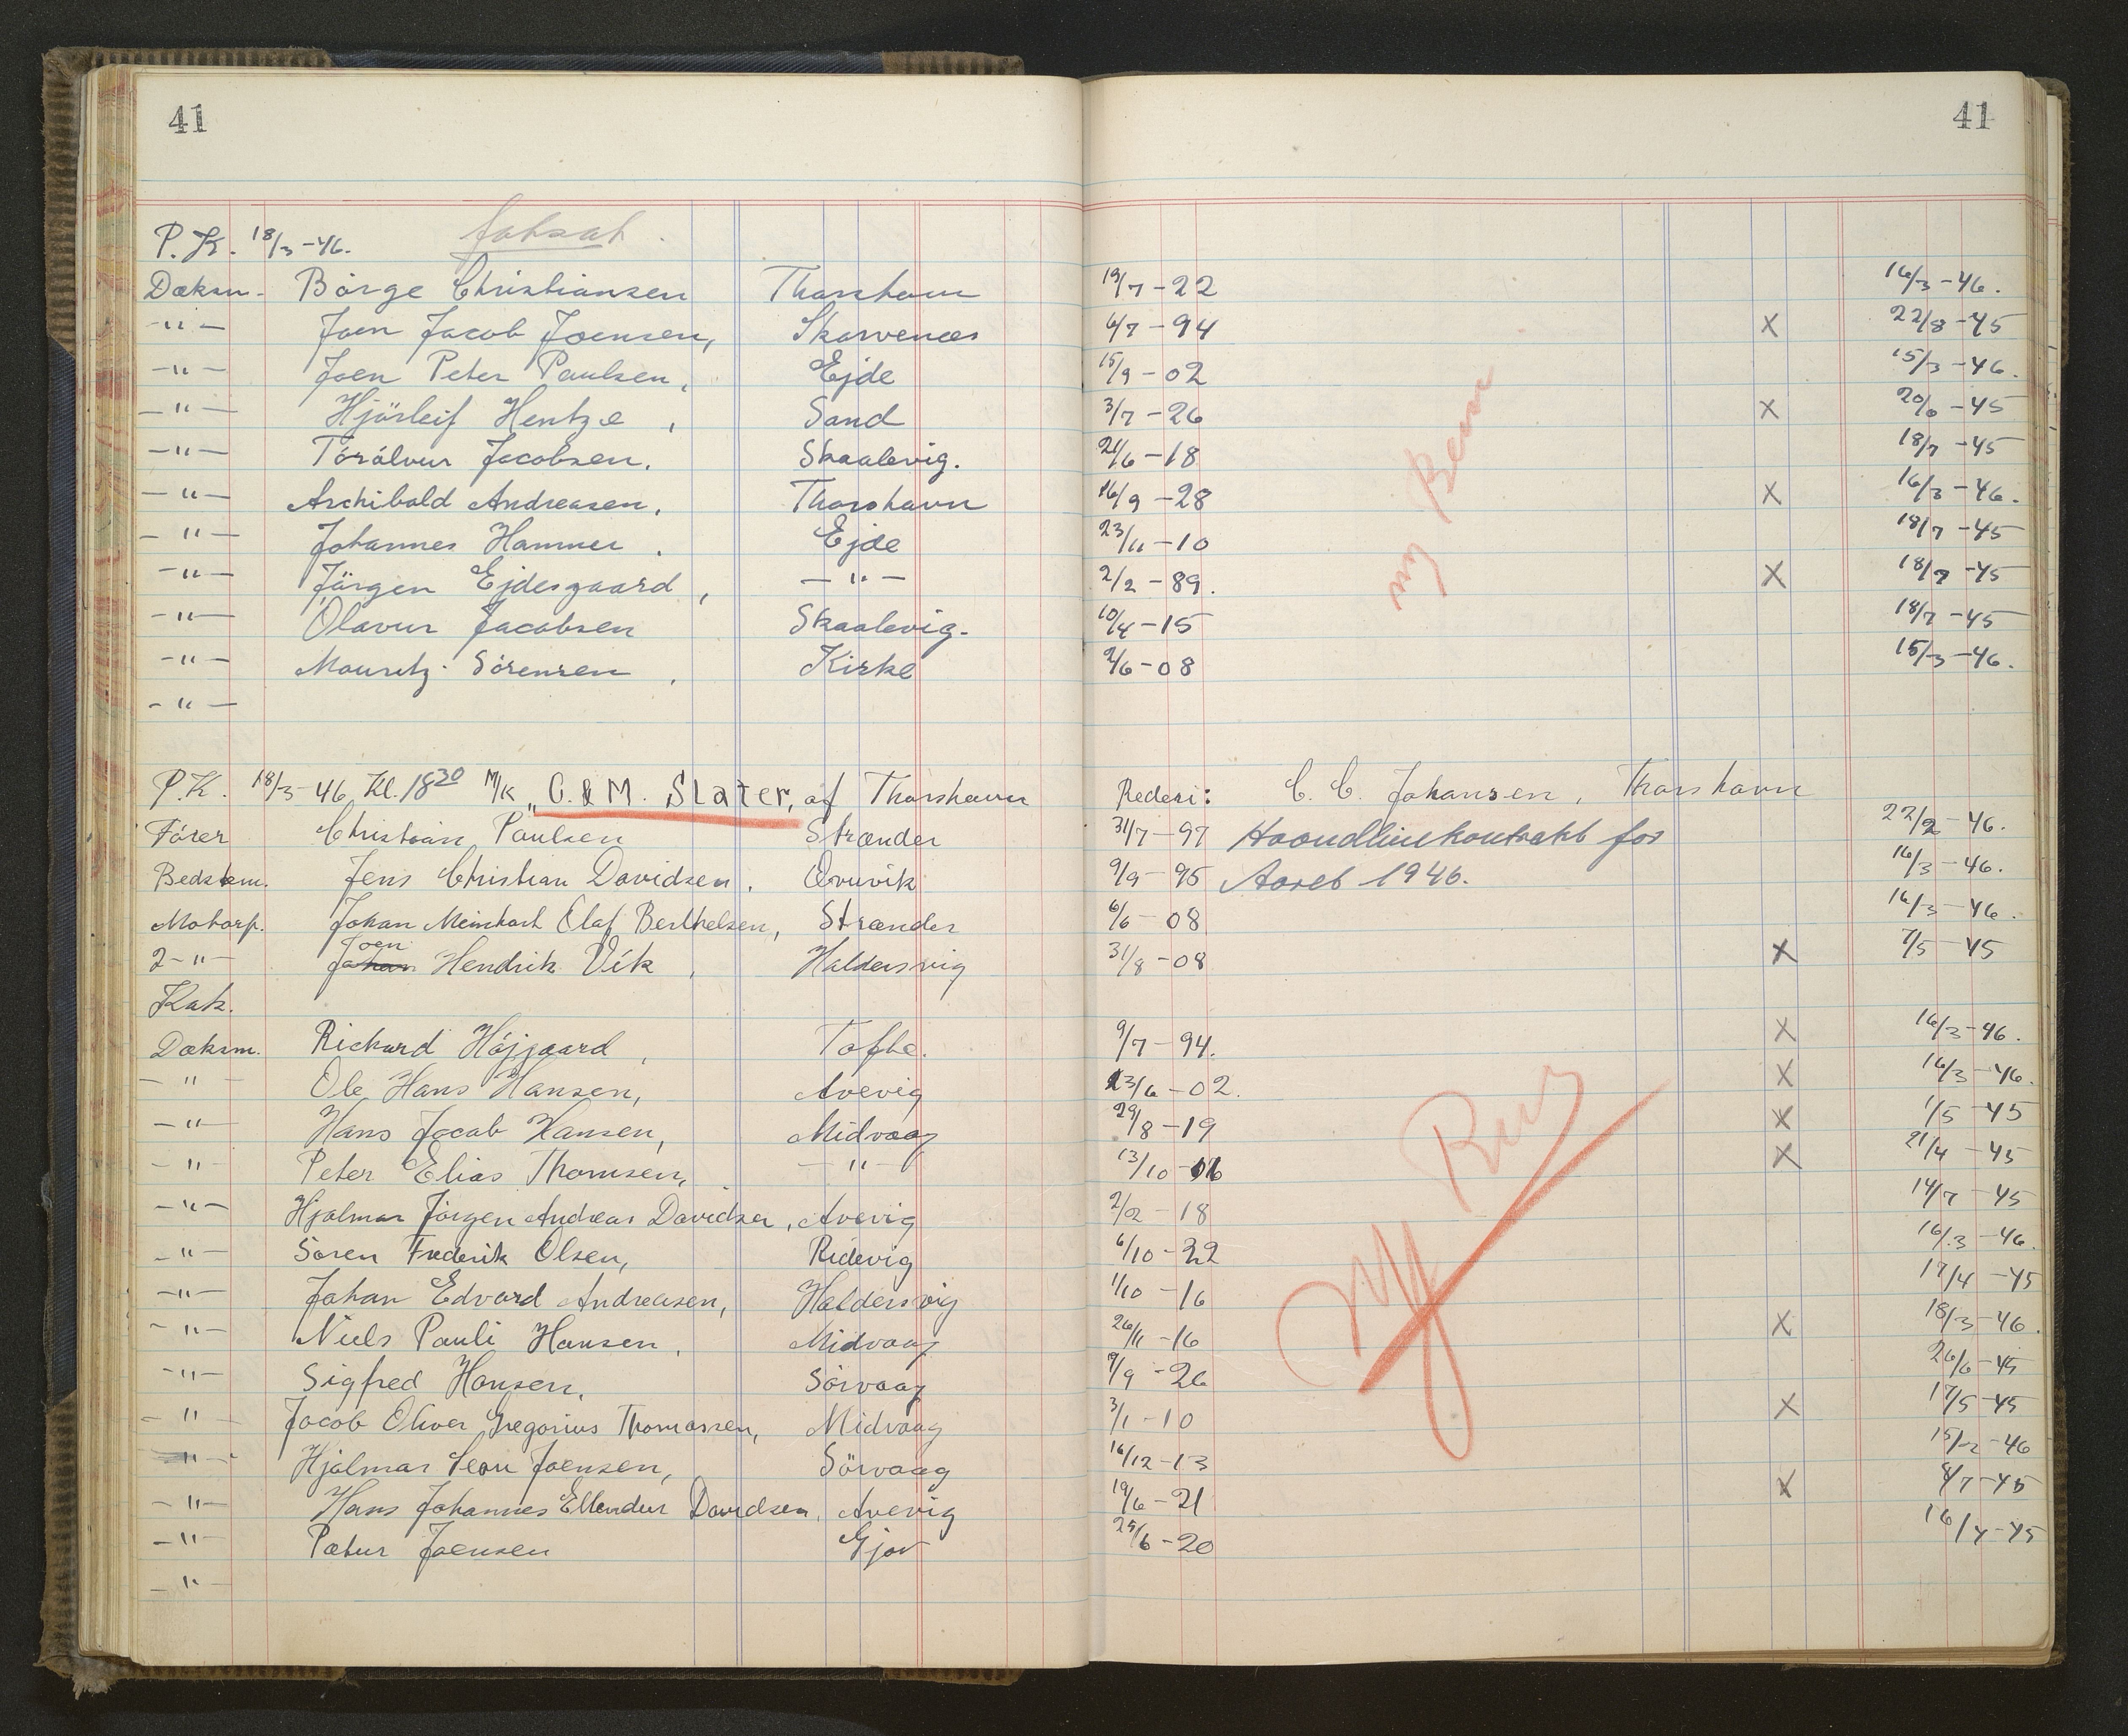 41 41
P.K. 18/3-46. fortsat.
Dæksm. Börge Christiansen Thorshavn 19/7-22 16/3-46.
-"- Joen Jacob Joensen, Skarvenæs 6/7-94 X 22/8-45
-"- Joen Peter Paulsen, Ejde 15/9-02 15/3-46.
-"- Hjörleif Hentze, Sand 3/7-26 X 20/6-45
-"- Tórálvur Jacobsen. Skaalevig. 21/6-18 18/7-45
-"- Archibald Andreasen, Thorshavn 16/9-28 X 16/3-46.
-"- Johannes Hammer. Ejde 23/11-10 18/7-45
-"- Jörgen Ejdesgaard, -"- 2/2-89. X 18/7-45
-"- Ólavur Jacobsen Skaalevig. 10/4-15 18/7-45
-"- Mouritz Sörensen, Kirke 2/6-08 15/3-46.
-"-
P.K. 18/3-46 Kl. 18 30 M/K „C. & M. Slater, af Thorshavn Rederi: C. C. Johansen, Thorshavn
Förer Christian Poulsen Strænder 31/7-97 Haandlinekontrakt for 22/2-46.
Bedstem. Jens Christian Davidsen. Qvivik 9/9-95 Aaret 1946. 16/3-46.
Motorp. Johan Meinhart Olaf Berthelsen, Strænder 6/6-08 16/3-46.
2-"- Johan Joen Hendrik Vík, Haldersvig 31/8-08 X 7/5-45
Kok.
Dæksm. Richard Höjgaard, Tofte. 9/7-94. X 16/3-46.
-"- Ole Hans Hansen, Avevig 23/6-02. X 16/3-46.
-"- Hans Jacob Hansen, Midvaag 29/8-19 X 1/5-45
-"- Peter Elias Thomsen, -"- 13/10-16 X 21/4-45
-"- Hjalmar Jörgen Andreas Davidsen, Avevig 2/2-18 14/7-45
-"- Sören Frederik Olsen, Ridevig 6/10-22 16/3-46.
-"- Johan Edvard Andreasen, Haldersvig 1/10-16 17/4-45
-"- Niels Pauli Hansen, Midvaag 26/11-16 X 18/3-46.
-"- Sigfred Hansen, Sörvaag 9/9-26 26/6-45
-"- Jacob Oliver Gregorius Thomassen, Midvaag 3/1-10 X 17/5-45
-"- Hjalmar Leon Joensen, Sörvaag 16/12-13 15/2-46
-"- Hans Johannes Ellendur Davidsen, Avevig 19/6-21 X 8/7-45
-"- Pætur Joensen Gjov 25/6-20 16/4-45
-"-